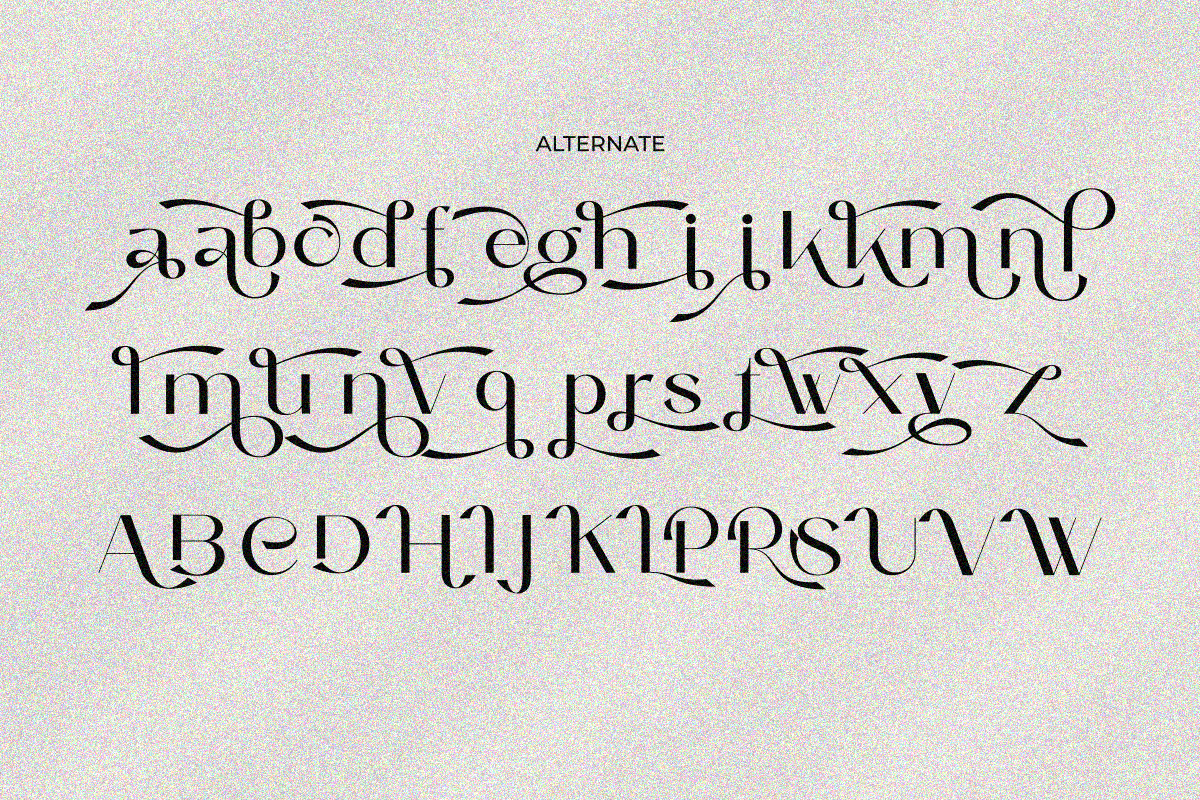 ALTERNATE
aabcdfeghijkkmnl
lmbunvqprstwxyz
ABCDHIJKLPRSUVW